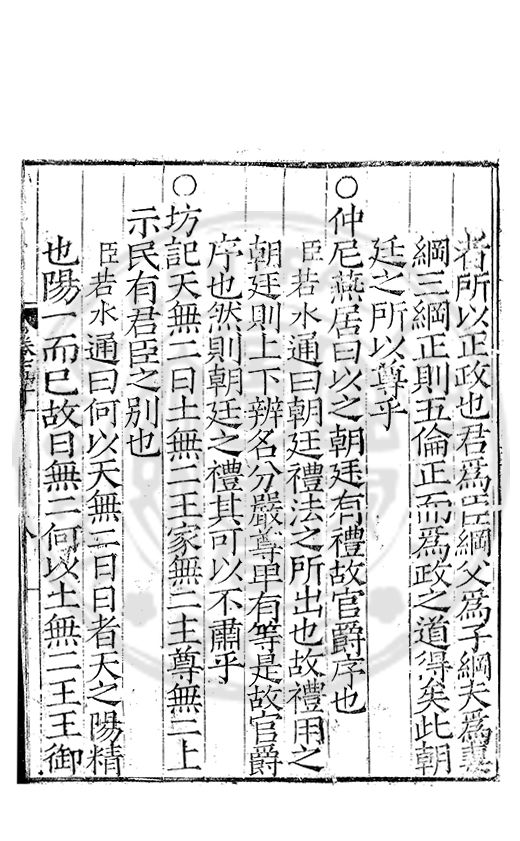 者所以正政也君爲臣綱父爲子綱夫爲妻
綱三綱正則五倫正而爲政之道得矣此朝
廷之所以尊乎
○仲尼燕居曰以之朝廷有禮故官爵序也
臣若水通曰朝廷禮法之所出也故禮用之
朝廷則上下辨名分嚴尊卑有等是故官爵
序也然則朝廷之禮其可以不肅乎
○坊記天無二日土無二王家無二主尊無二上
示民有君臣之別也
臣若水通曰何以天無二日日者天之陽精
也陽一而已故日無二何以土無二王王御